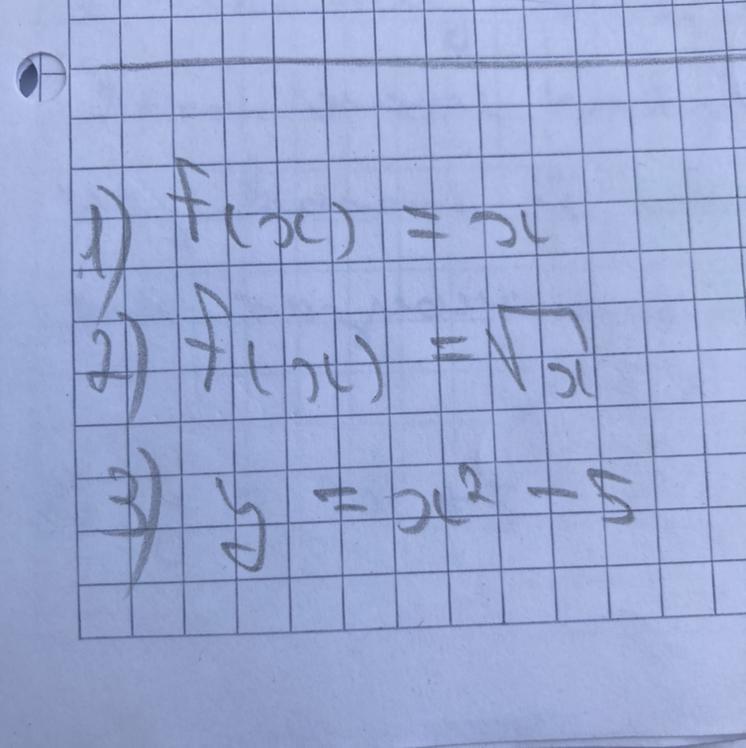 1) f(x) = x
2) f(x) = √x
3) y = x² - 5